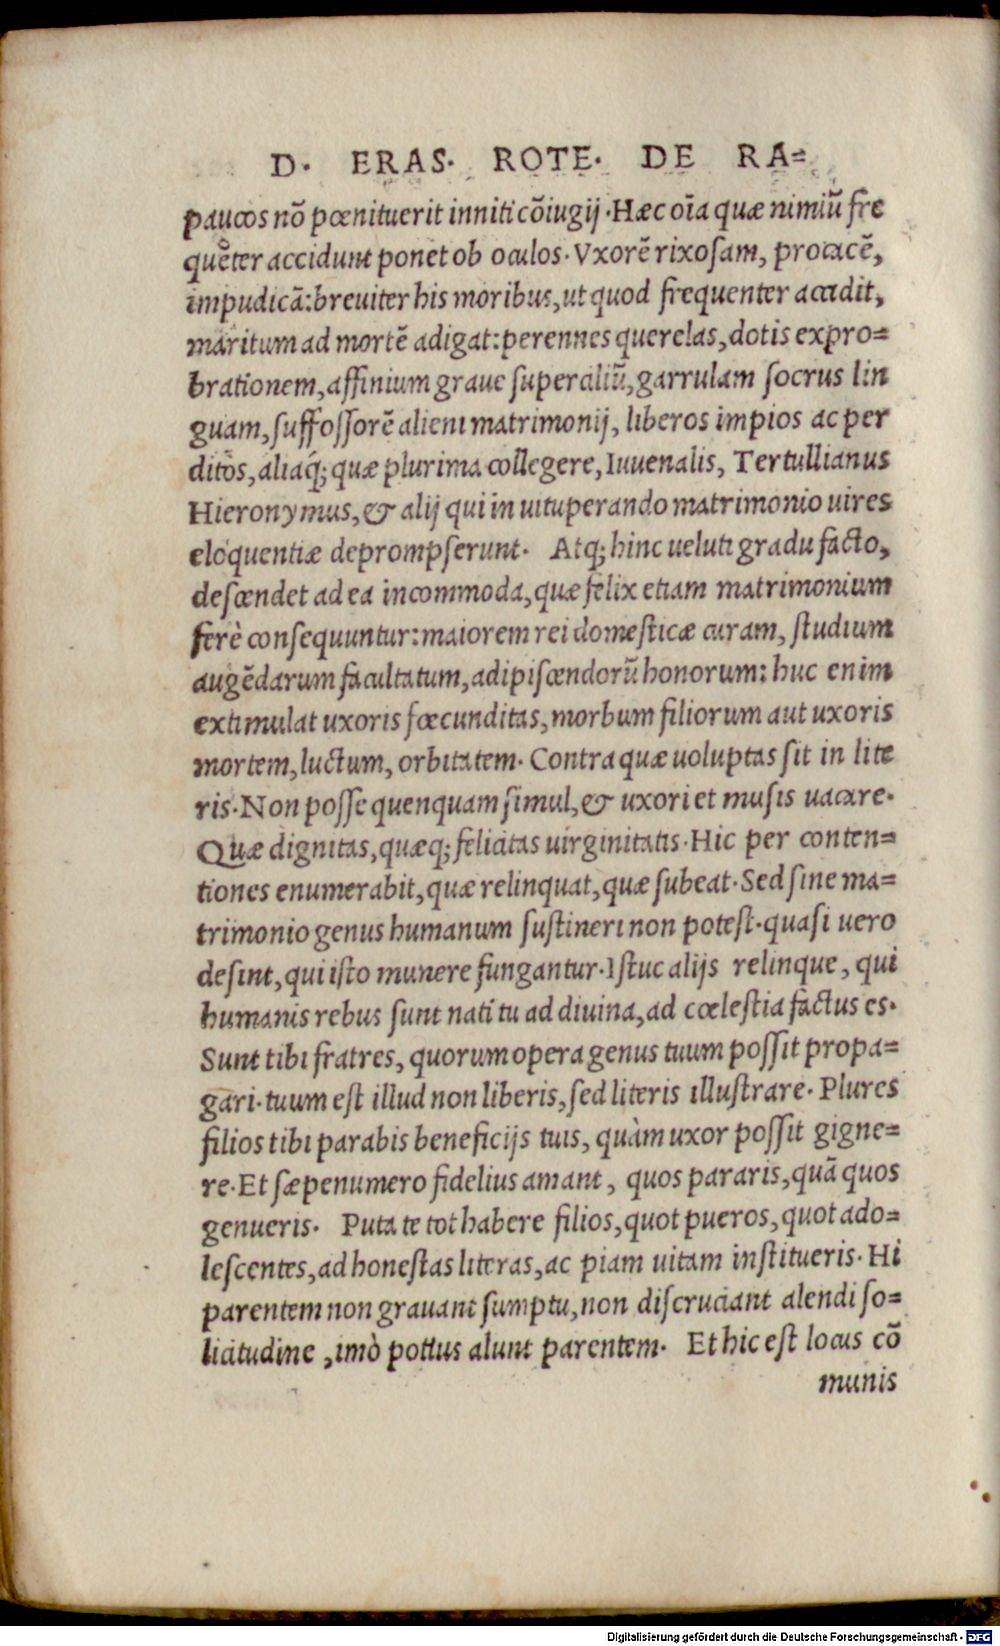 D. ERAS. ROTE. DE RA=
paucos nõ pœnituerit inniti cõiugij. Hæc oĩa quæ nimiũ fre
quẽter accidunt ponet ob oculos. Vxorẽ rixosam, procacẽ,
impudicã: breuiter his moribus, ut quod frequenter accidit,
maritum ad mortẽ adigat: perennes querelas, dotis expro=
brationem, affinium graue superciliũ, garrulam socrus lin
guam, suffossorẽ alieni matrimonij, liberos impios ac per
ditos, aliaq́; quæ plurima collegere, Iuuenalis, Tertullianus
Hieronymus, & alij qui in uituperando matrimonio uires
eloquentiæ deprompserunt. Atq; hinc ueluti gradu facto,
descendet ad ea incommoda, quæ felix etiam matrimonium
ferè consequuntur: maiorem rei domesticæ curam, studium
augẽdarum facultatum, adipiscendorũ honorum: huc enim
extimulat uxoris fœcunditas, morbum filiorum aut uxoris
mortem, luctum, orbitatem. Contra quæ uoluptas sit in lite
ris. Non posse quenquam simul, & uxori et musis uacare.
Quæ dignitas, quæq; felicitas uirginitatis. Hic per conten=
tiones enumerabit, quæ relinquat, quæ subeat. Sed sine ma=
trimonio genus humanum sustineri non potest. quasi uero
desint, qui isto munere fungantur. Istuc alijs relinque, qui
humanis rebus sunt nati tu ad diuina, ad cœlestia factus es.
Sunt tibi fratres, quorum opera genus tuum possit propa=
gari. tuum est illud non liberis, sed literis illustrare. Plures
filios tibi parabis beneficijs tuis, quàm uxor possit gigne=
re. Et sæpenumero fidelius amant, quos pararis, quã quos
genueris. Puta te tot habere filios, quot pueros, quot ado=
lescentes, ad honestas literas, ac piam uitam institueris. Hi
parentem non grauant sumptu, non discruciant alendi so=
licitudine, imò potius alunt parentem. Et hic est locus cõ
munis
Digitalisierung gefördert durch die Deutsche Forschungsgemeinschaft - DFG